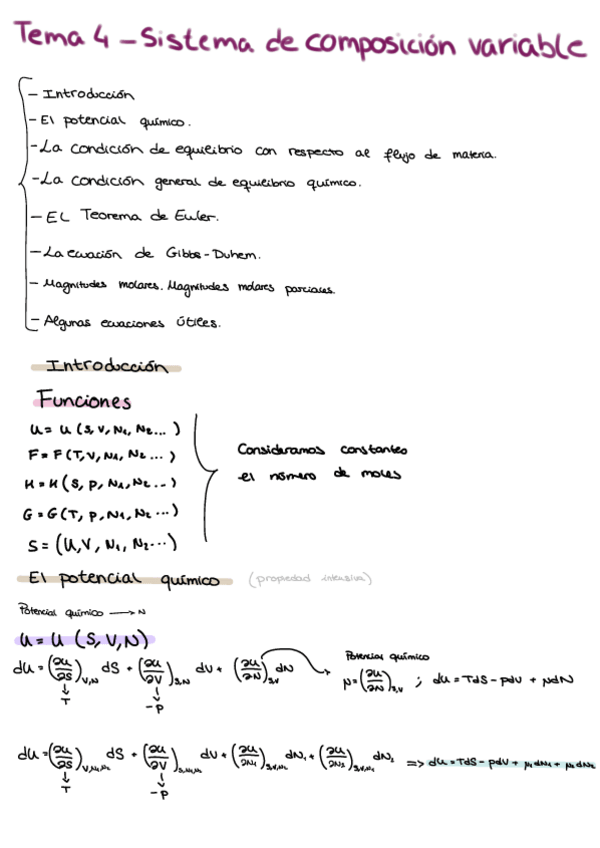 Tema 4 - Sistema de composición variable
- Introducción
- El potencial químico.
- La condición de equilibrio con respecto al flujo de materia.
- La condición general de equilibrio químico.
- EL Teorema de Euler.
- La ecuación de Gibbs-Duhem.
- Magnitudes molares. Magnitudes molares parciales.
- Algunas ecuaciones útiles.
Introducción
Funciones
U = U (S, V, N₁, N₂ ... )
F = F (T, V, N₁, N₂ ... )
H = H (S, P, N₁, N₂ ... )
G = G (T, P, N₁, N₂ ... )
S = (U, V, N₁, N₂ ... )
Consideramos constantes
el número de moles
El potencial químico (propiedad intensiva)
Potencial químico → N
U = U (S, V, N)
dU = (∂U/∂S)V,N dS + (∂U/∂V)S,N dV + (∂U/∂N)S,V dN
↓ T ↓ -P
Potencial químico
μ = (∂U/∂N)S,V ; dU = TdS - pdV + μdN
dU = (∂U/∂S)V,N₁,N₂ dS + (∂U/∂V)S,N₁,N₂ dV + (∂U/∂N₁)S,V,N₂ dN₁ + (∂U/∂N₂)S,V,N₁ dN₂ => dU = TdS - pdV + μ₁dN₁ + μ₂dN₂
↓ T ↓ -P